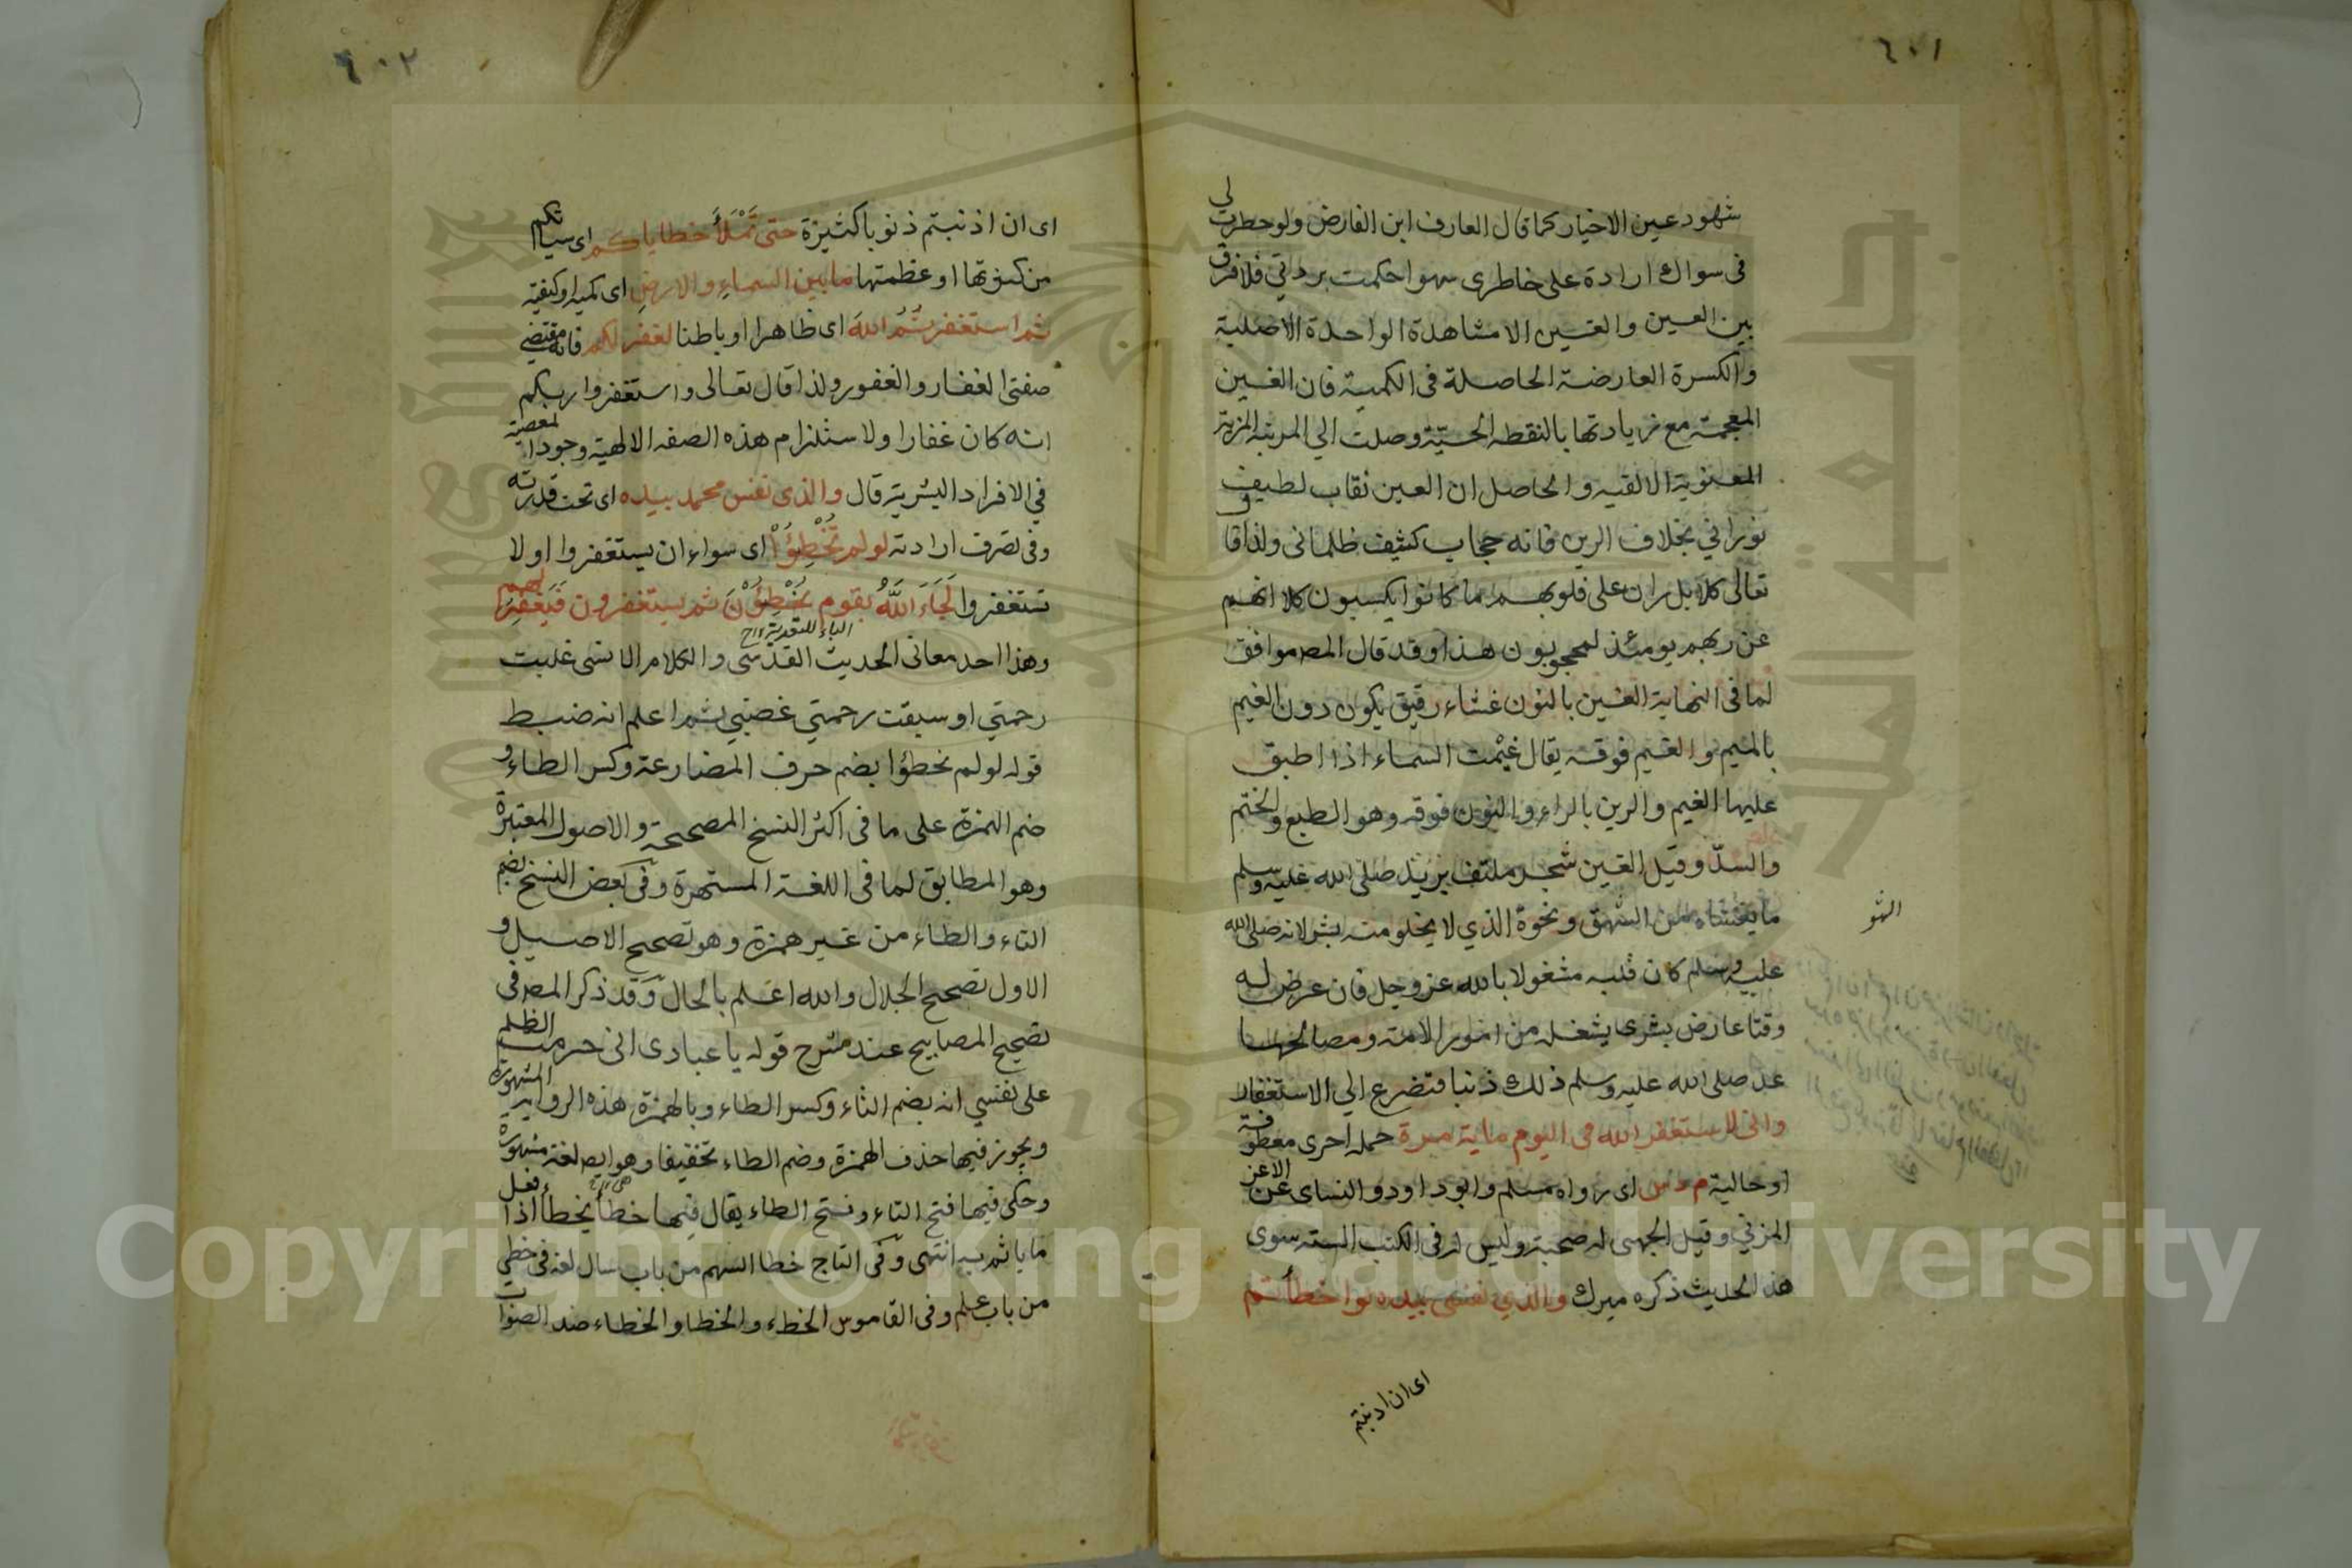 ٦٠١
شهود عين الاخيار كما قال العارف ابن الفارض ولو خطرت لي
في سواك ارادة على خاطري سهوا حكمت بردتي فلا فرق
بين العين والغين الا مشاهدة الواحدة الاصلية
والكسرة العارضة الحاصلة في الكمية فان الغين
المعجمة مع زيادتها بالنقطه الحسيّة وصلت الي المرتبة المزية
المعنوية الالقيه والحاصل ان العين نقاب لطيف
نوراني بخلاف الرين فانه حجاب كثيف ظلماني ولذا قا
تعالى كلا بل ران على قلوبهم ما كانوا يكسبون كلا انهم
عن ربهم يومئذ لمحجوبون هذا وقد قال المص موافق
لما في النهاية الغين بالنون غشاء رقيق يكون دون الغيم
بالميم والغيم فوقه يقال غيمت السماء اذا اطبق
عليها الغيم والرين بالراء والنون فوقه وهو الطبع والختم
والسدّ وقيل الغين شجر ملتف يريد صلى الله عليه وسلم
ما يغشاه من السهو ونحوه الذي لا يخلو منه بشر لانه صلى الله
السهو
عليه وسلم كان قلبه مشغولا بالله عز وجل فان عرض له
وقتا عارض بشرى يشغله من امور الامة ومصالحها
عد صلى الله عليه وسلم ذلك ذنبا فتضرع الي الاستغفار
واني لاستغفر الله في اليوم ماية مرة جملة اخرى معطوفة
او حالية م د س اى رواه مسلم وابو داود والنساى عن الاغر
المزني وقيل الجهنى له صحبة وليس له في الكتب الستة سوى
هذ الحديث ذكره ميرك والذي نفسي بيده لو اخطأتم
اى ان اذنبتم
٦٠٢
اى ان اذنبتم ذنوبا كثيرة حتى تَمْلَأَ خطاياكم اى سياتكم
من كثرتها او عظمتها ما بين السماء والارض اى كمية او كيفية
ثم استغفرتُمُ اللهَ اى ظاهرا او باطنا لغفر لكم فانه مقتضى
صفتى الغفار والغفور ولذا قال تعالى واستغفروا ربكم
انه كان غفارا ولاستلزام هذه الصفه الالهية وجود المعصية
في الافراد البشرية قال والذى نفس محمد بيده اى تحت قدرته
وفي تصرف ارادته لو لم تُخْطِؤُا اى سواء ان يستغفروا او لا
تستغفروا لَجَاءَ اللَّهُ بقوم يُخْطِؤُنَ ثم يستغفرون فيغفر لهم
الباء للتعدية ١٢
وهذا احد معانى الحديث القدسى والكلام الانسى غلبت
رحمتي او سبقت رحمتي غضبي ثم اعلم انه ضبط
قوله لو لم تخطؤا بضم حرف المضارعة وكسر الطاء و
ضم الهمزة على ما في اكثر النسخ المصححة والاصول المعتبرة
وهو المطابق لما في اللغة المشتهرة وفي بعض النسخ بضم
التاء والطاء من غير همزة وهو تصحيح الاصيل و
الاول تصحيح الجلال والله اعلم بالحال وقد ذكر المص في
تصحيح المصابيح عند شرح قوله يا عبادى انى حرمت الظلم
على نفسي انه بضم التاء وكسر الطاء وبالهمزة هذه الرواية المشهورة
ويجوز فيها حذف الهمزة وضم الطاء تخفيفا وهو ايضا لغة مشهورة
وحكى فيها فتح التاء وفتح الطاء يقال فيها خطأ يخطأ اذا فعل
ما ياثم به انتهى وفي التاج خطا السهم من باب سال لغة في خطي
من باب علم وفي القاموس الخطء والخطا والخطاء ضد الصواب
Copyright © King Saud University